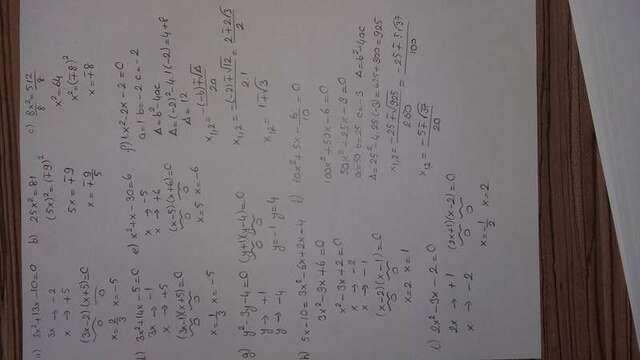 a) 3x²+13x-10=0
3x → -2
x → +5
(3x-2)(x+5)=0
0 0
x=2/3 x=-5
b) 25x²=81
(5x)²=(∓9)²
5x=∓9
x=∓9/5
c) 8x²/8=512/8
x²=64
x²=(∓8)²
x=∓8
d) 3x²+14x-5=0
3x → -1
x → +5
(3x-1)(x+5)=0
0 0
x=1/3 x=-5
e) x²+x-30=6
x → -5
x → +6
(x-5)(x+6)=0
0 0
x=5 x=-6
f) 1x²-2x-2=0
a=1 b=-2 c=-2
Δ=b²-4ac
Δ=(-2)²-4.1(-2)=4+8
Δ=12
x1,2=-(-b)∓√Δ/2a
x1,2=-(-2)∓√12/2.1=2∓2√3/2
x12=1∓√3
g) y²-3y-4=0 (y+1)(y-4)=0
y → +1 0 0
y → -4 y=-1 y=4
h) 5x-10=3x²-6x+2x-4
3x²-9x+6=0
x²-3x+2=0
x → -2
x → -1
(x-2)(x-1)=0
0 0
x=2 x=1
10x²+5x-6/10=0
100x²+50x-6=0
50x²+25x-3=0
a=50 b=25 c=-3 Δ=b²-4ac
Δ=25²-4.25(-3)=625+300=925
x1,2=-25∓√925/200=-25∓5√37/100
x12=-5∓√37/20
i) 2x²-3x-2=0
2x → +1 (2x+1)(x-2)=0
x → -2 0 0
x=-1/2 x=2